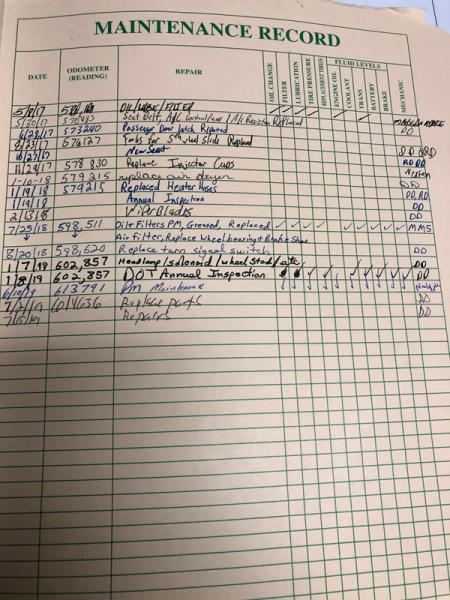 MAINTENANCE RECORD
DATE ODOMETER (READING) REPAIR OIL CHANGE FILTER LUBRICATION TIRE PRESSURE REPLACEMENT TIRES FLUID LEVELS ENGINE OIL COOLANT TRANS BATTERY BRAKE MECHANIC
5/30/17 Seat Belt, A/C Control Panel / A/c Resistor Replaced
6/28/17 573240 Passenger Door Latch Repaired DD
8/23/17 576127 for 5th wheel slide Replaced
10/27/17 New Seat DD
11/29/17 578830 Replace Injector Cups DD
1-10-18 579215 replace air dryer
1/19/18 579215 Replaced Heater Hoses DD
1/19/18 Annual Inspection DD
2/13/18 Wiper Blades DD
7/25/18 598,511 Oil + Filters PM, Greased, Replaced ✓ ✓ ✓ ✓ ✓ ✓ ✓ ✓ MMS
Air Filter, Replace Wheel bearing + Brake Shoe
8/20/18 598,620 Replace turn signal switch DD
1/7/19 602,857 Headlamp/solenoid/wheel stud/etc DD
1/8/19 602,857 DOT Annual Inspection DD
613791 PM Maintenance
614636 Replace parts DD
7/15/19 Repairs DD